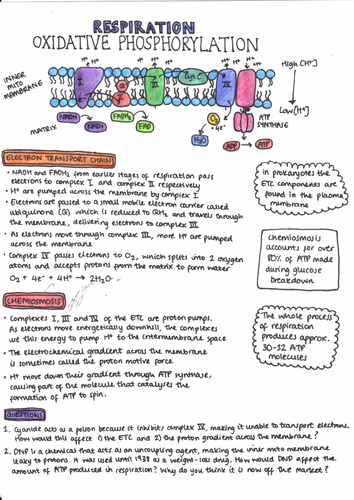 RESPIRATION
OXIDATIVE PHOSPHORYLATION
H⁺ H⁺ H⁺ H⁺ H⁺ H⁺ H⁺
High [H⁺]
INNER
MITO
MEMBRANE
I
Q
II
III
Cyt C
IV
Low [H⁺]
MATRIX
NADH
NAD+
FADH₂
FAD
O₂
+4e⁻
H₂O
ATP
SYNTHASE
ADP
ATP
ELECTRON TRANSPORT CHAIN
• NADH and FADH₂ from earlier stages of respiration pass
electrons to complex I and complex II respectively
• H⁺ are pumped across the membrane by complex I
• Electrons are passed to a small mobile electron carrier called
ubiquinone (Q) which is reduced to QH₂ and travels through
the membrane, delivering electrons to complex III
• As electrons move through complex III, more H⁺ are pumped
across the membrane
• Complex IV passes electrons to O₂, which splits into 2 oxygen
atoms and accepts protons from the matrix to form water
O₂ + 4e⁻ + 4H⁺ → 2H₂O
in prokaryotes the
ETC components are
found in the plasma
membrane
Chemiosmosis
accounts for over
80% of ATP made
during glucose
breakdown
CHEMIOSMOSIS
• Complexes I, III and IV of the ETC are proton pumps.
As electrons move energetically downhill, the complexes
use this energy to pump H⁺ to the intermembrane space
• The electrochemical gradient across the membrane
is sometimes called the proton motive force
• H⁺ move down their gradient through ATP synthase,
causing part of the molecule that catalyses the
formation of ATP to spin.
The whole process
of respiration
produces approx.
30-32 ATP
molecules
QUESTIONS
1. Cyanide acts as a poison because it inhibits complex IV, making it unable to transport electrons.
How would this affect 1) the ETC and 2) the proton gradient across the membrane?
2. DNP is a chemical that acts as an uncoupling agent, making the inner mito membrane
leaky to protons. It was used until 1938 as a weight-loss drug. How would DNP affect the
amount of ATP produced in respiration? Why do you think it is now off the market?